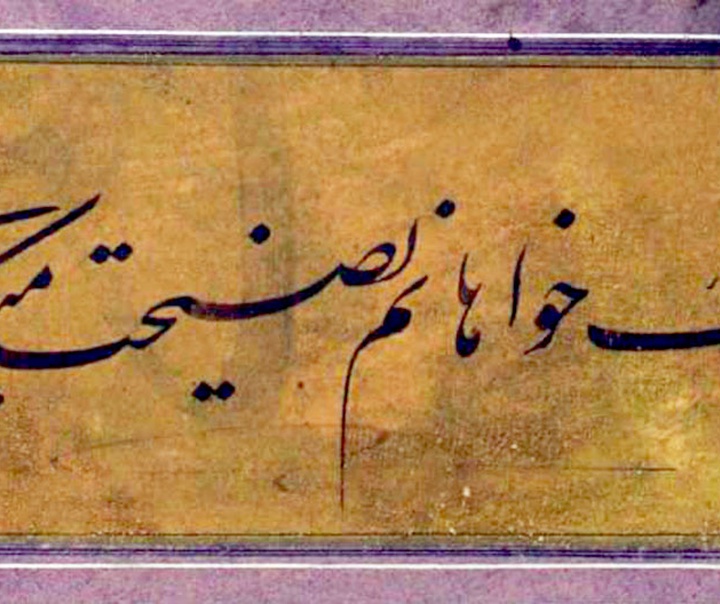 خواهانم نصیحت